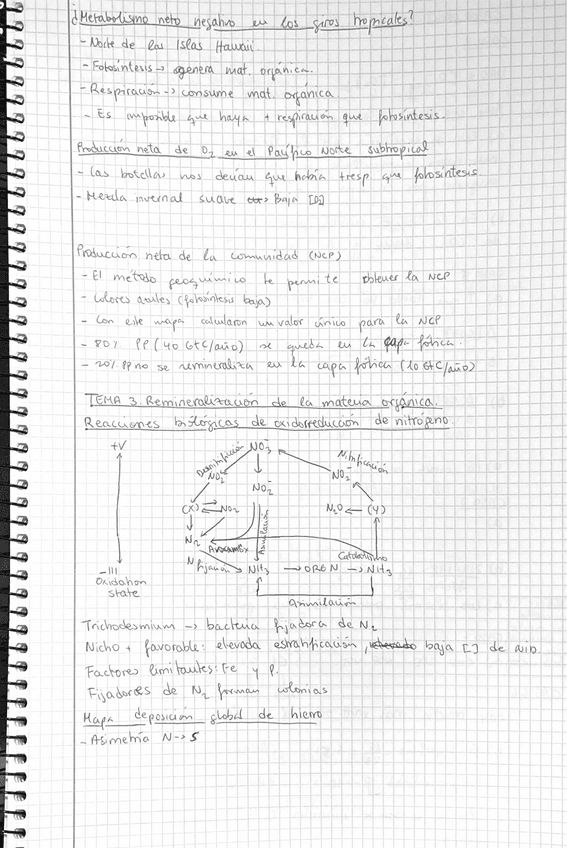 ¿Metabolismo neto negativo en los giros tropicales?
- Norte de las Islas Hawaii
- Fotosíntesis → genera mat. orgánica.
- Respiración → consume mat. orgánica
- Es imposible que haya + respiración que fotosíntesis.
Producción neta de O2 en el Pacífico Norte subtropical
- Las botellas nos decían que había + resp que fotosíntesis.
- Mezcla invernal suave → Baja [O2]
Producción neta de la comunidad (NCP)
- El método geoquímico te permite obtener la NCP
- Colores azules (fotosíntesis baja)
- Con este mapa calcularon un valor único para la NCP
- 80% PP (40 GtC/año) se queda en la capa fótica.
- 20% PP no se remineraliza en la capa fótica (10 GtC/año)
TEMA 3. Remineralización de la materia orgánica.
Reacciones biológicas de oxidorreducción de nitrógeno.
+V
NO3-
Desnitrificación
Nitrificación
NO2-
NO2-
NO2-
(X)
NO2
N2O ← (Y)
N2
Asimilación
Anammox
Catabolismo
N fijación
NH3 → ORG N → NH3
-III
Oxidation
state
Asimilación
Trichodesmium → bacteria fijadora de N2
Nicho + favorable: elevada estratificación, baja [ ] de nib.
Factores limitantes: Fe y P.
Fijadores de N2 forman colonias
Mapa deposición global de hierro
- Asimetría N → S